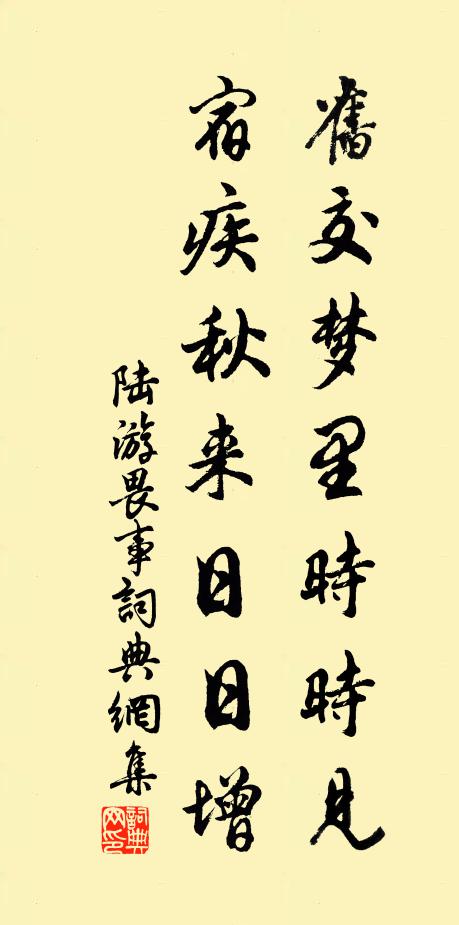 舊交梦里時時見
宿疾秋来日日增
陆游畏事詞典網集
詞典网印